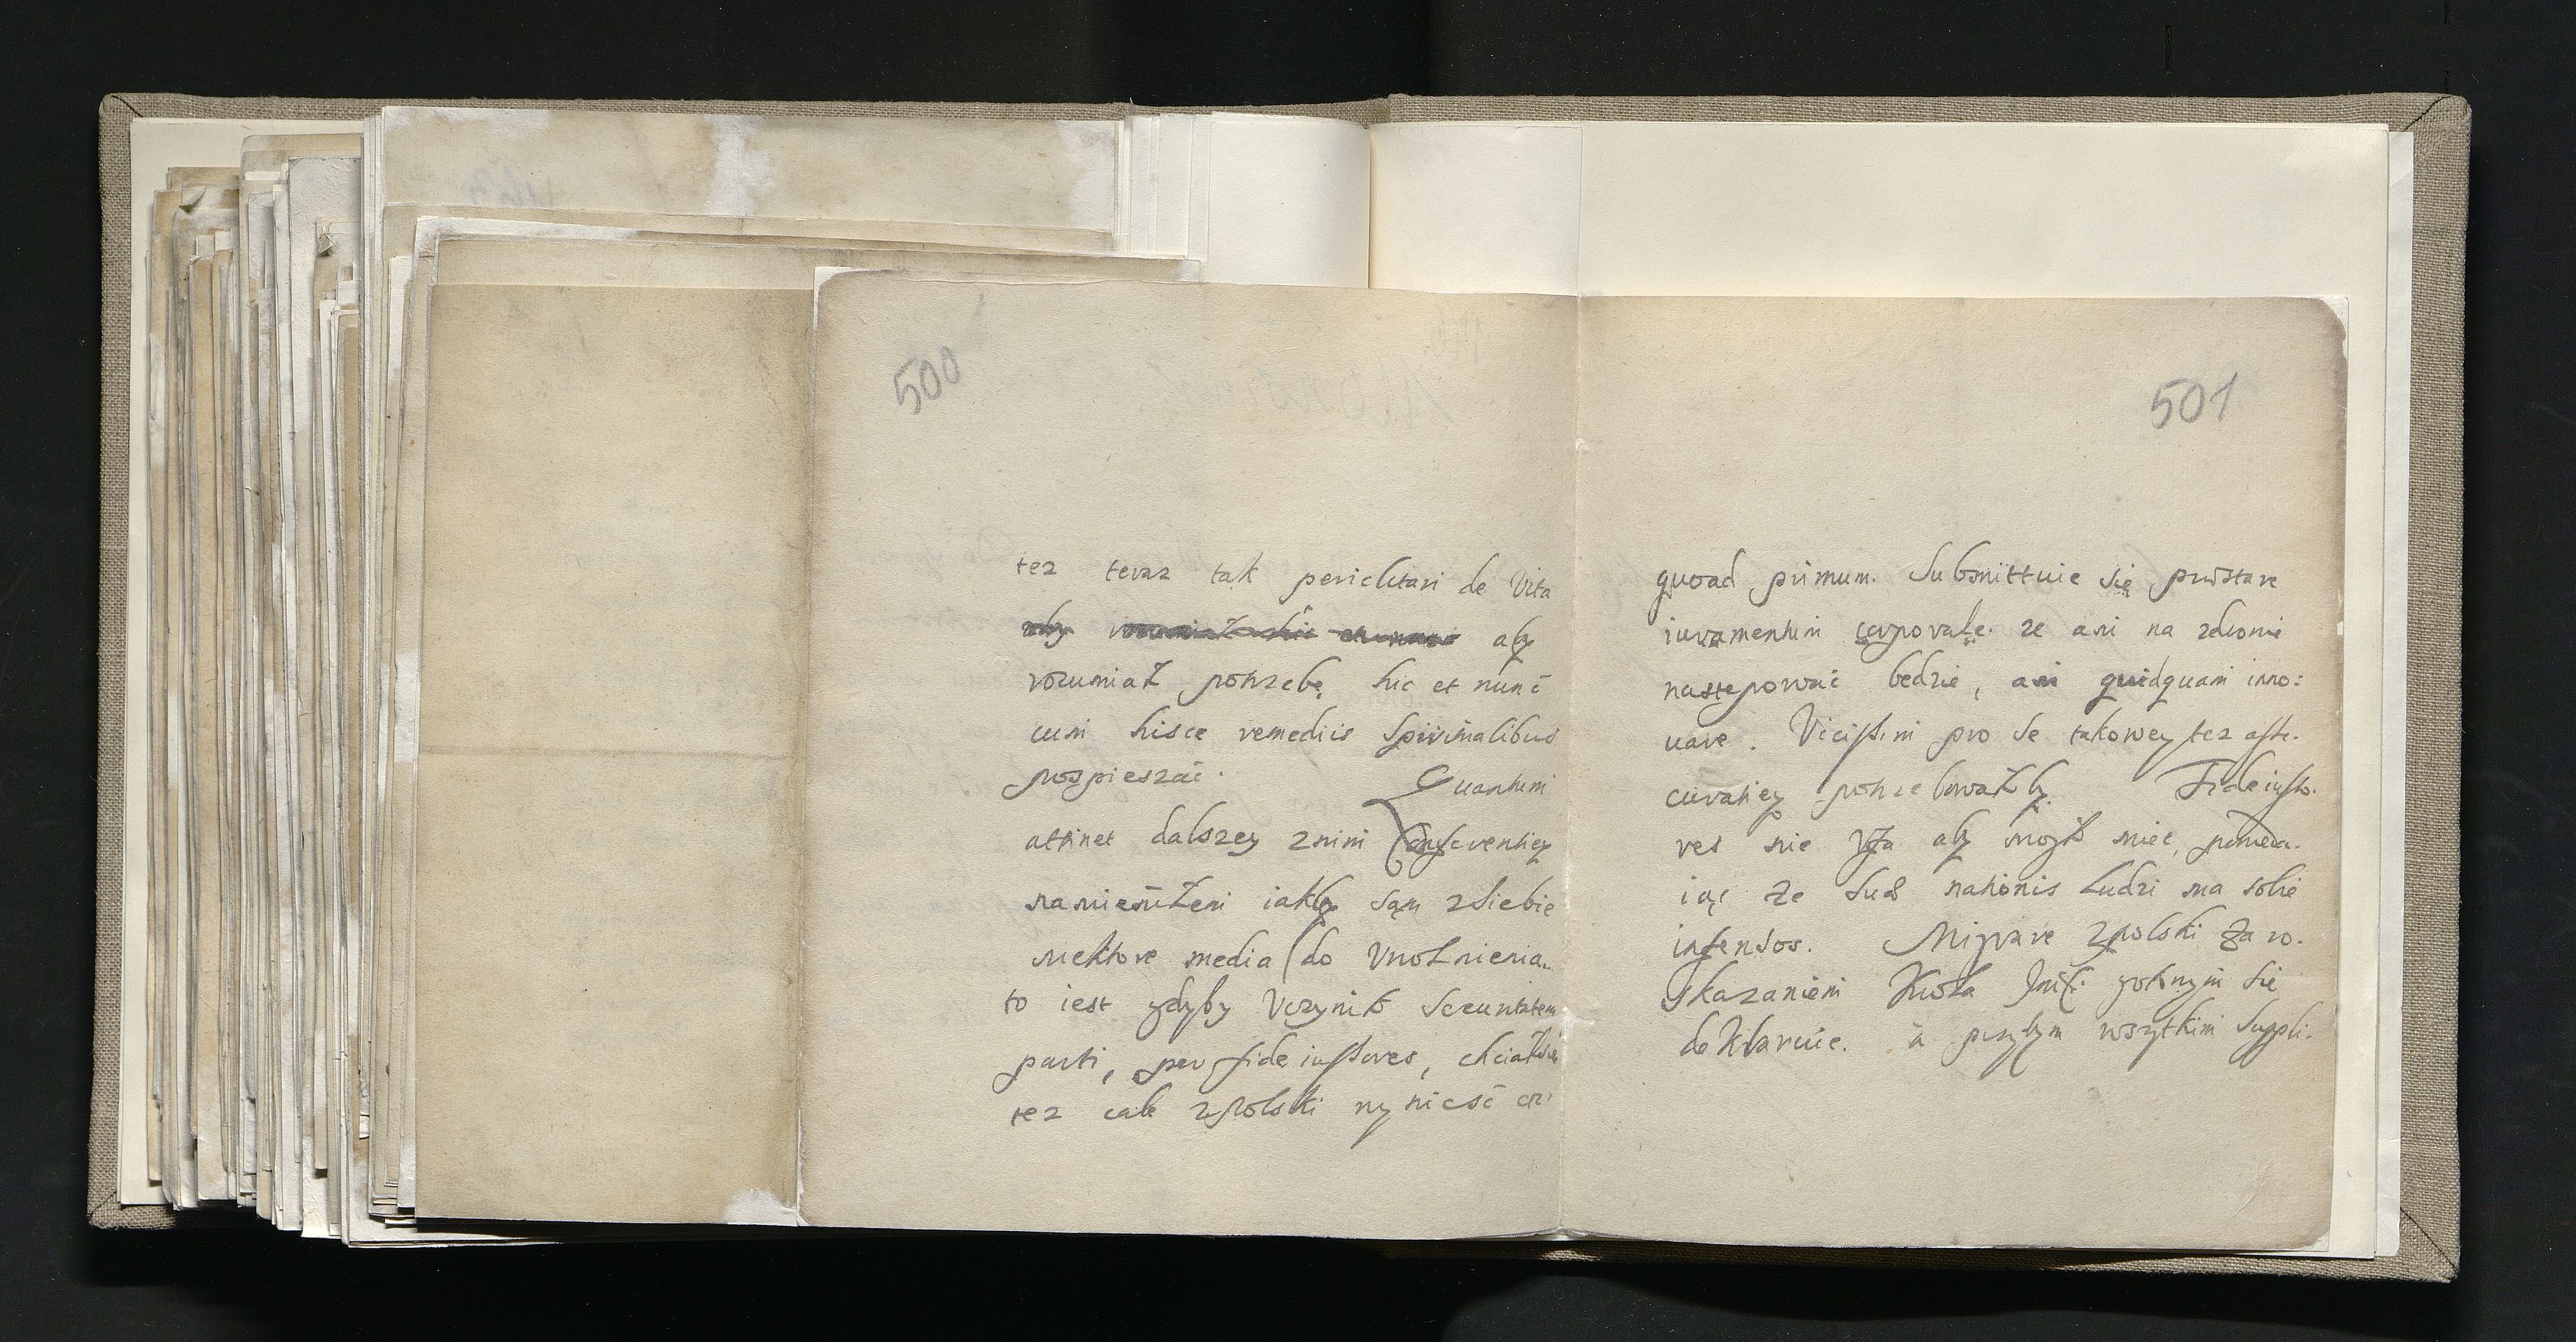 500
tez teraz tak periclitari de vita
aby rozumiał hic et nunc aby
rozumiał potrzebę hic et nunc
cum hisce remediis spiritualibus
pospieszać. Quantum
attinet dalszey znim conferentiey
namieniłem iakby sąm zsiebie
niektore media do vwolnienia
to iest gdyby vczynił securitatem
parti, per fideiussores, chciał
tez cale zpolski wyniesć
501
quoad primum. Submittuie się præstare
iuramentum corporale. ze ani na zdrowie
następować bedzie, ani quidquam inno:
uare. Vicissim pro se takowey tez asse-
curatiey potrzebowałby. Fideiusso-
res nie vfa aby mogł miec, powieda-
iąc ze suæ nationis ludzi ma sobie
infensos. Migrare zpolski za ro-
skazaniem Krola Jmści gotowym się
deklaruie. a przytym wszytkim suppli-